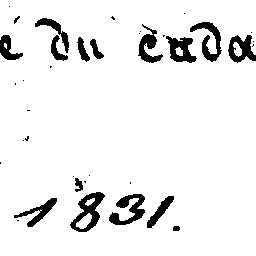 é du cada
1831.